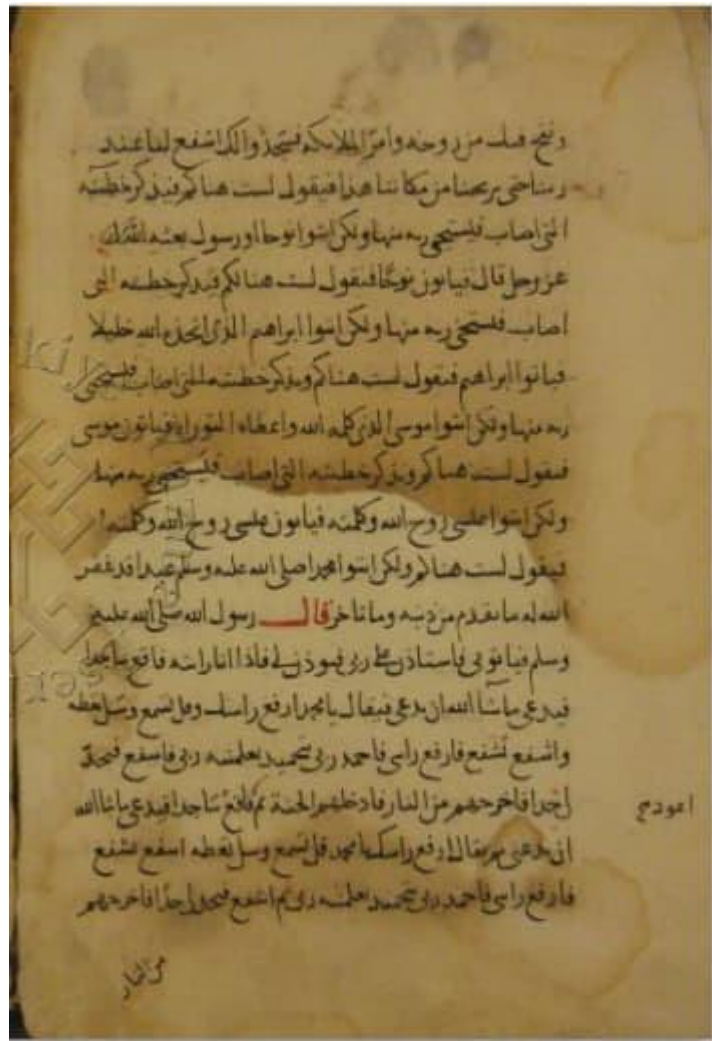 ونفخ فيك من روحه وامر الملائكة فسجدوا لك اشفع لنا عند
ربنا حتى يريحنا من مكاننا هذا فيقول لست هناكم فيذكر خطيئته
التي اصاب فيستحي ربه منها ولكن ائتوا نوحا اور رسول بعثه الله
عز وجل قال فياتون نوحا فيقول لست هنالكم فيذكر خطيئته التي
اصاب فيستحي ربه منها ولكن ائتوا ابراهيم الذي اتخذه الله خليلا
فياتوا ابراهيم فيقول لست هناكم ويذكر خطيئته التي اصاب فيستحي
ربه منها ولكن ائتوا موسى الذي كلمه الله واعطاه التوراة فياتون موسى
فيقول لست هناكم ويذكر خطيئته التي اصاب فيستحي ربه منها
ولكن ائتوا عيسى روح الله وكلمته فياتون عيسى روح الله وكلمته
فيقول لست هناكم ولكن ائتوا محمدا صلى الله عليه وسلم عبدا قد غفر
الله له ما تقدم من ذنبه وما تاخر قال رسول الله صلى الله عليه
وسلم فياتوني فاستاذن على ربي فيوذن لي فاذا انا رايته فاقع ساجدا
فيدعني ما شا الله ان يدعني فيقال يا محمد ارفع راسك وقل تسمع وسل تعطه
واشفع تشفع فارفع راسي فاحمد ربي بتحميد يعلمنيه ربي فاشفع فيحد
لي حدا فاخرجهم من النار فادخلهم الجنة ثم فاقع ساجدا فيدعني ما شا الله
ان يدعني ثم يقال ارفع راسك يا محمد قل تسمع وسل تعطه اشفع تشفع
فارفع راسي فاحمد ربي بتحميد يعلمنيه ربي ثم اشفع فيحد لي حدا فاخرجهم
من النار